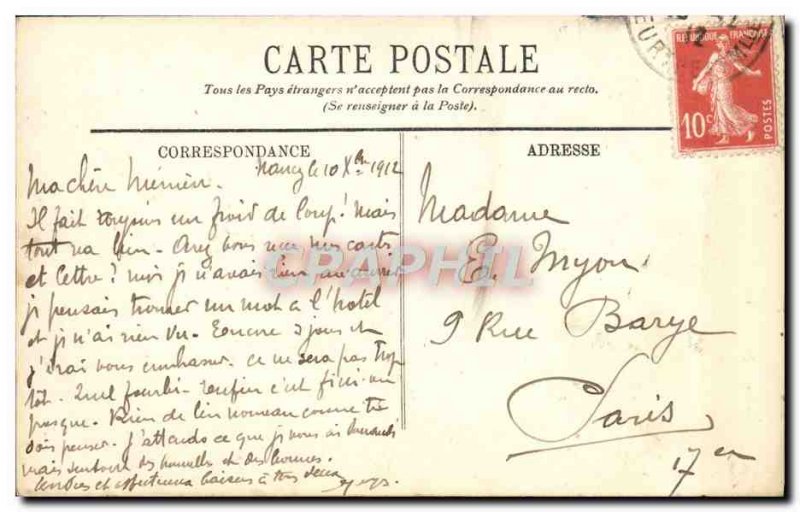 CARTE POSTALE
Tous les Pays étrangers n'acceptent pas la Correspondance au recto.
(Se renseigner à la Poste).
REPUBLIQUE FRANÇAISE
10c
POSTES
CORRESPONDANCE
ADRESSE
Nancy le 10 Xbre 1912
Ma chère
Il fait toujours un froid de loup! Mais
tout va bien - Avez vous reçu mes cartes
et lettre? moi je n'avais rien
je pensais trouver un mot à l'hôtel
et je n'ai rien vu. Encore 3 jours et
j'irai vous embrasser. ce ne sera pas trop
tôt. Quel fourbi - enfin c'est fini ou
presque. Rien de bien nouveau comme tu
dois penser. J'attends ce que je vous ai demandé
mais surtout des nouvelles et des bonnes.
tendres et affectueux baisers à tous deux
CPAPHIL
Madame
E. Myon
9 Rue Barye
Paris
17em